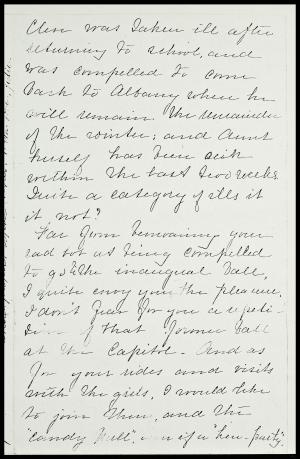 Clem was taken ill after
returning to school, and
was compelled to come
back to Albany where he
will remain the remainder
of the winter; and Aunt
herself has been sick
within the last two weeks.
Quite a category of ills it
it not?
Far from bemoaning your
sad lot at being compelled
to go to the inaugural ball,
I quite envy you the pleasure.
I don't fear for you a repeti-
tion of that former ball
at the Capitol. And as
for your rides and visits
with the girls, I would like
to join them, and the
"candy pull", even if a "hen-party".